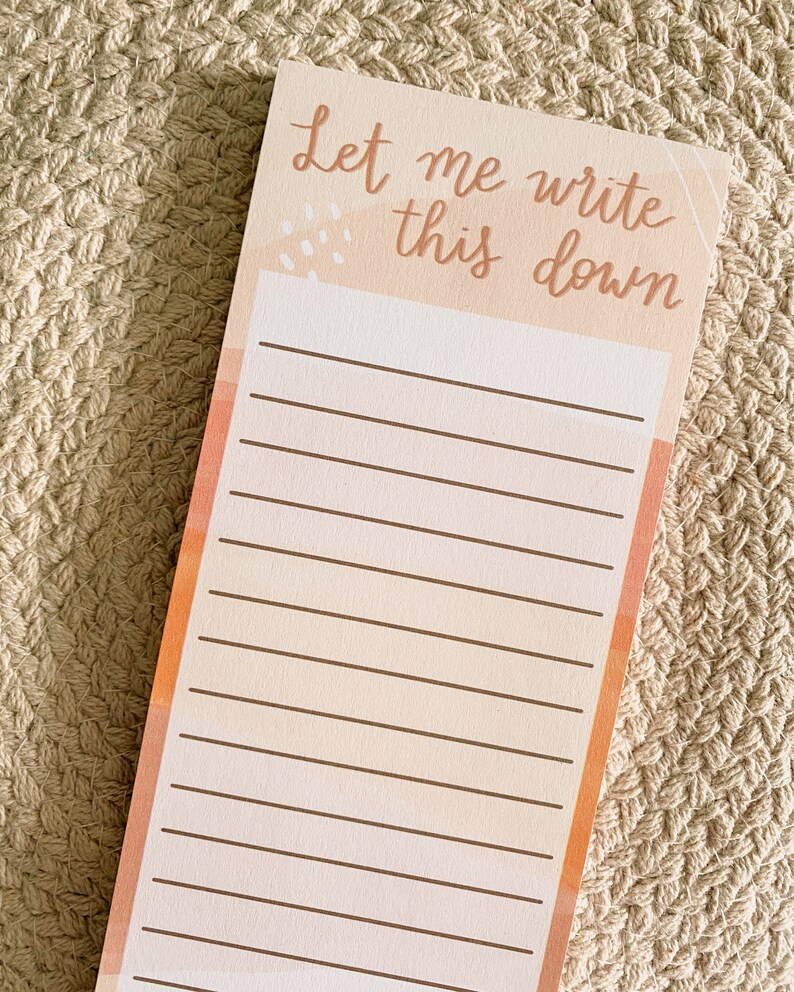 Let me write
this down